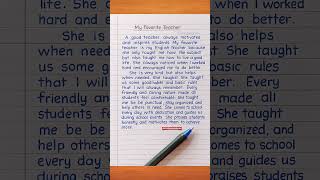 life. She always
when I worked
hard and
do better.
She is
also helps
when needed.
She taught
us some
basic rules
that I will
Every
friendly and
made all
students feel
She taught
me be
organized,
and help others
comes to school
every day
and guides us
during school
My Favorite Teacher
A good teacher always motivates
and inspires students. My favorite
teacher is my English teacher because
she not only taught me how the subject
but also taught me how to live a good
life. She always noticed when I worked
hard and encouraged me to do better.
She is very kind but also helps
when needed. She taught
us some good habits and basic rules
that I will always remember. Every
friendly and caring nature made all
students feel comfortable. She taught
me be be punctual, stay organized, and
help others in need. She comes to school
every day with dedication and guides us
during school events. She praises students
honestly and motivates them to achieve
more.